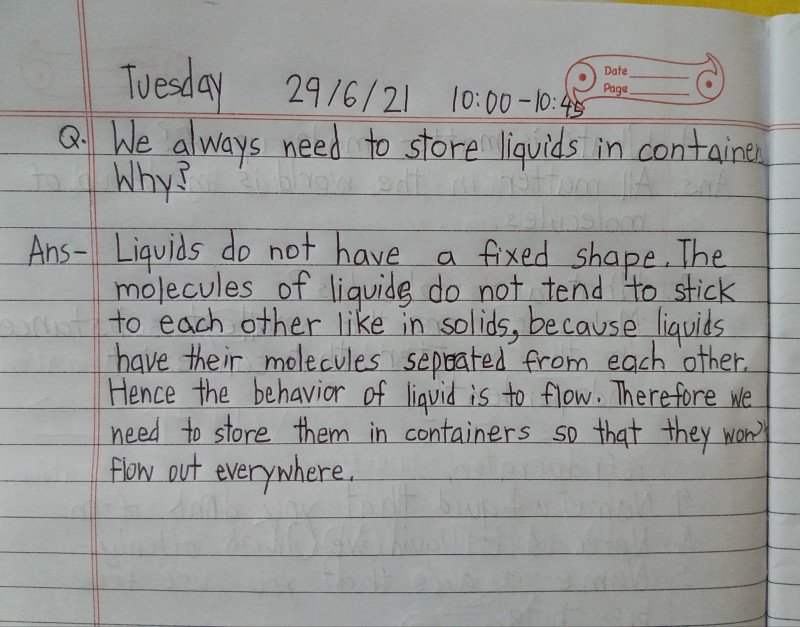 Date
Page
Tuesday 29/6/21 10:00-10:45
Q. We always need to store liquids in container
Why?
Ans- Liquids do not have a fixed shape. The
molecules of liquids do not tend to stick
to each other like in solids, because liquids
have their molecules seprated from each other.
Hence the behavior of liquid is to flow. Therefore we
need to store them in containers so that they won't
flow out everywhere.